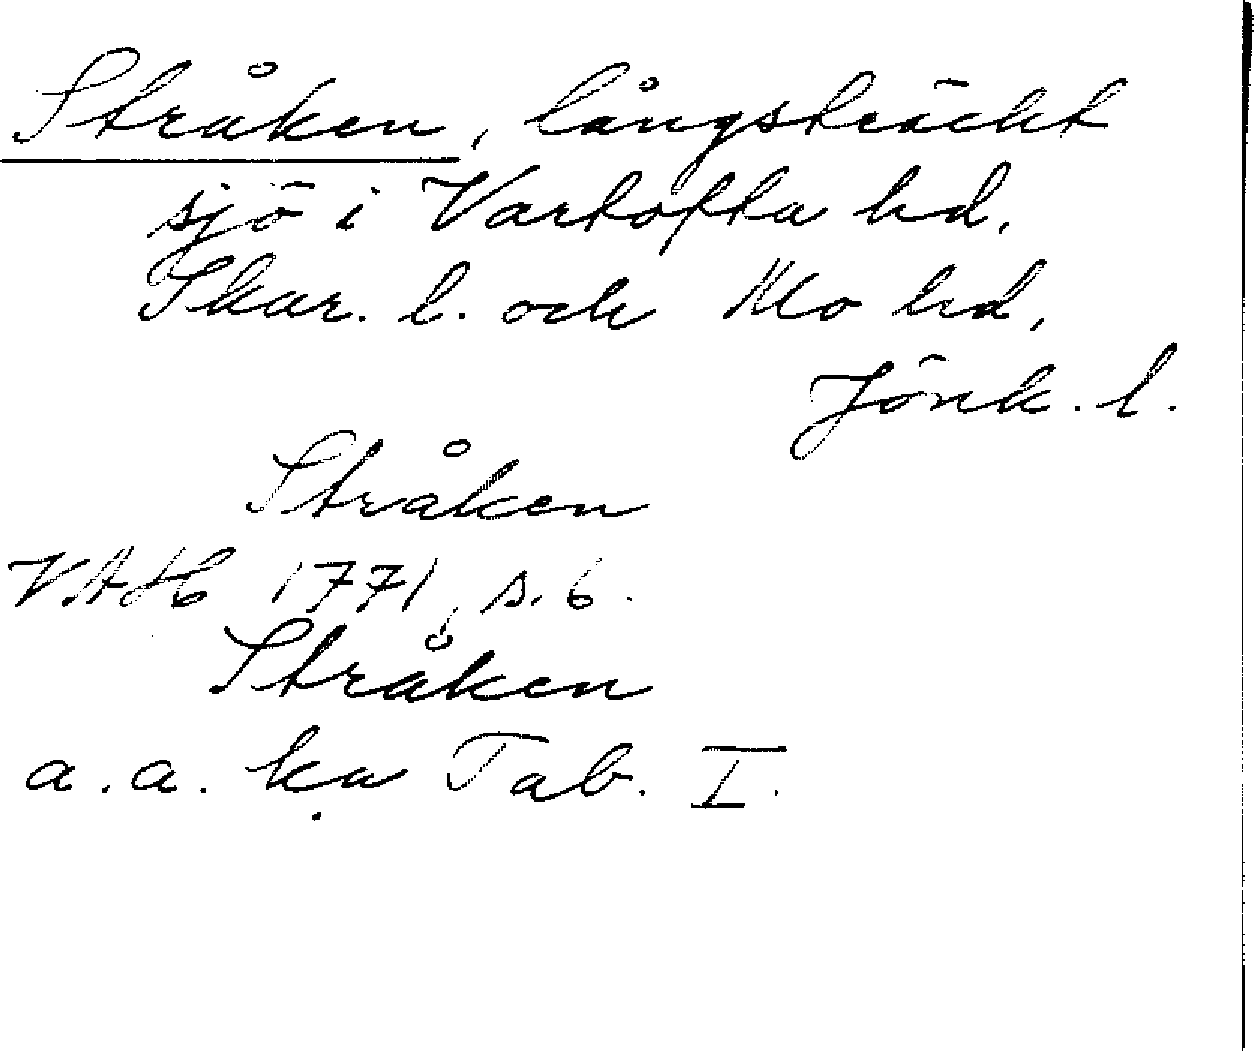 Stråken, långsträckt
sjö i Vartofta hd.
Skar. l. och Mo hd,
Jönk. l.
Stråken
VAH 1771, s. 6.
Stråken
a. a. ka Tab. I.